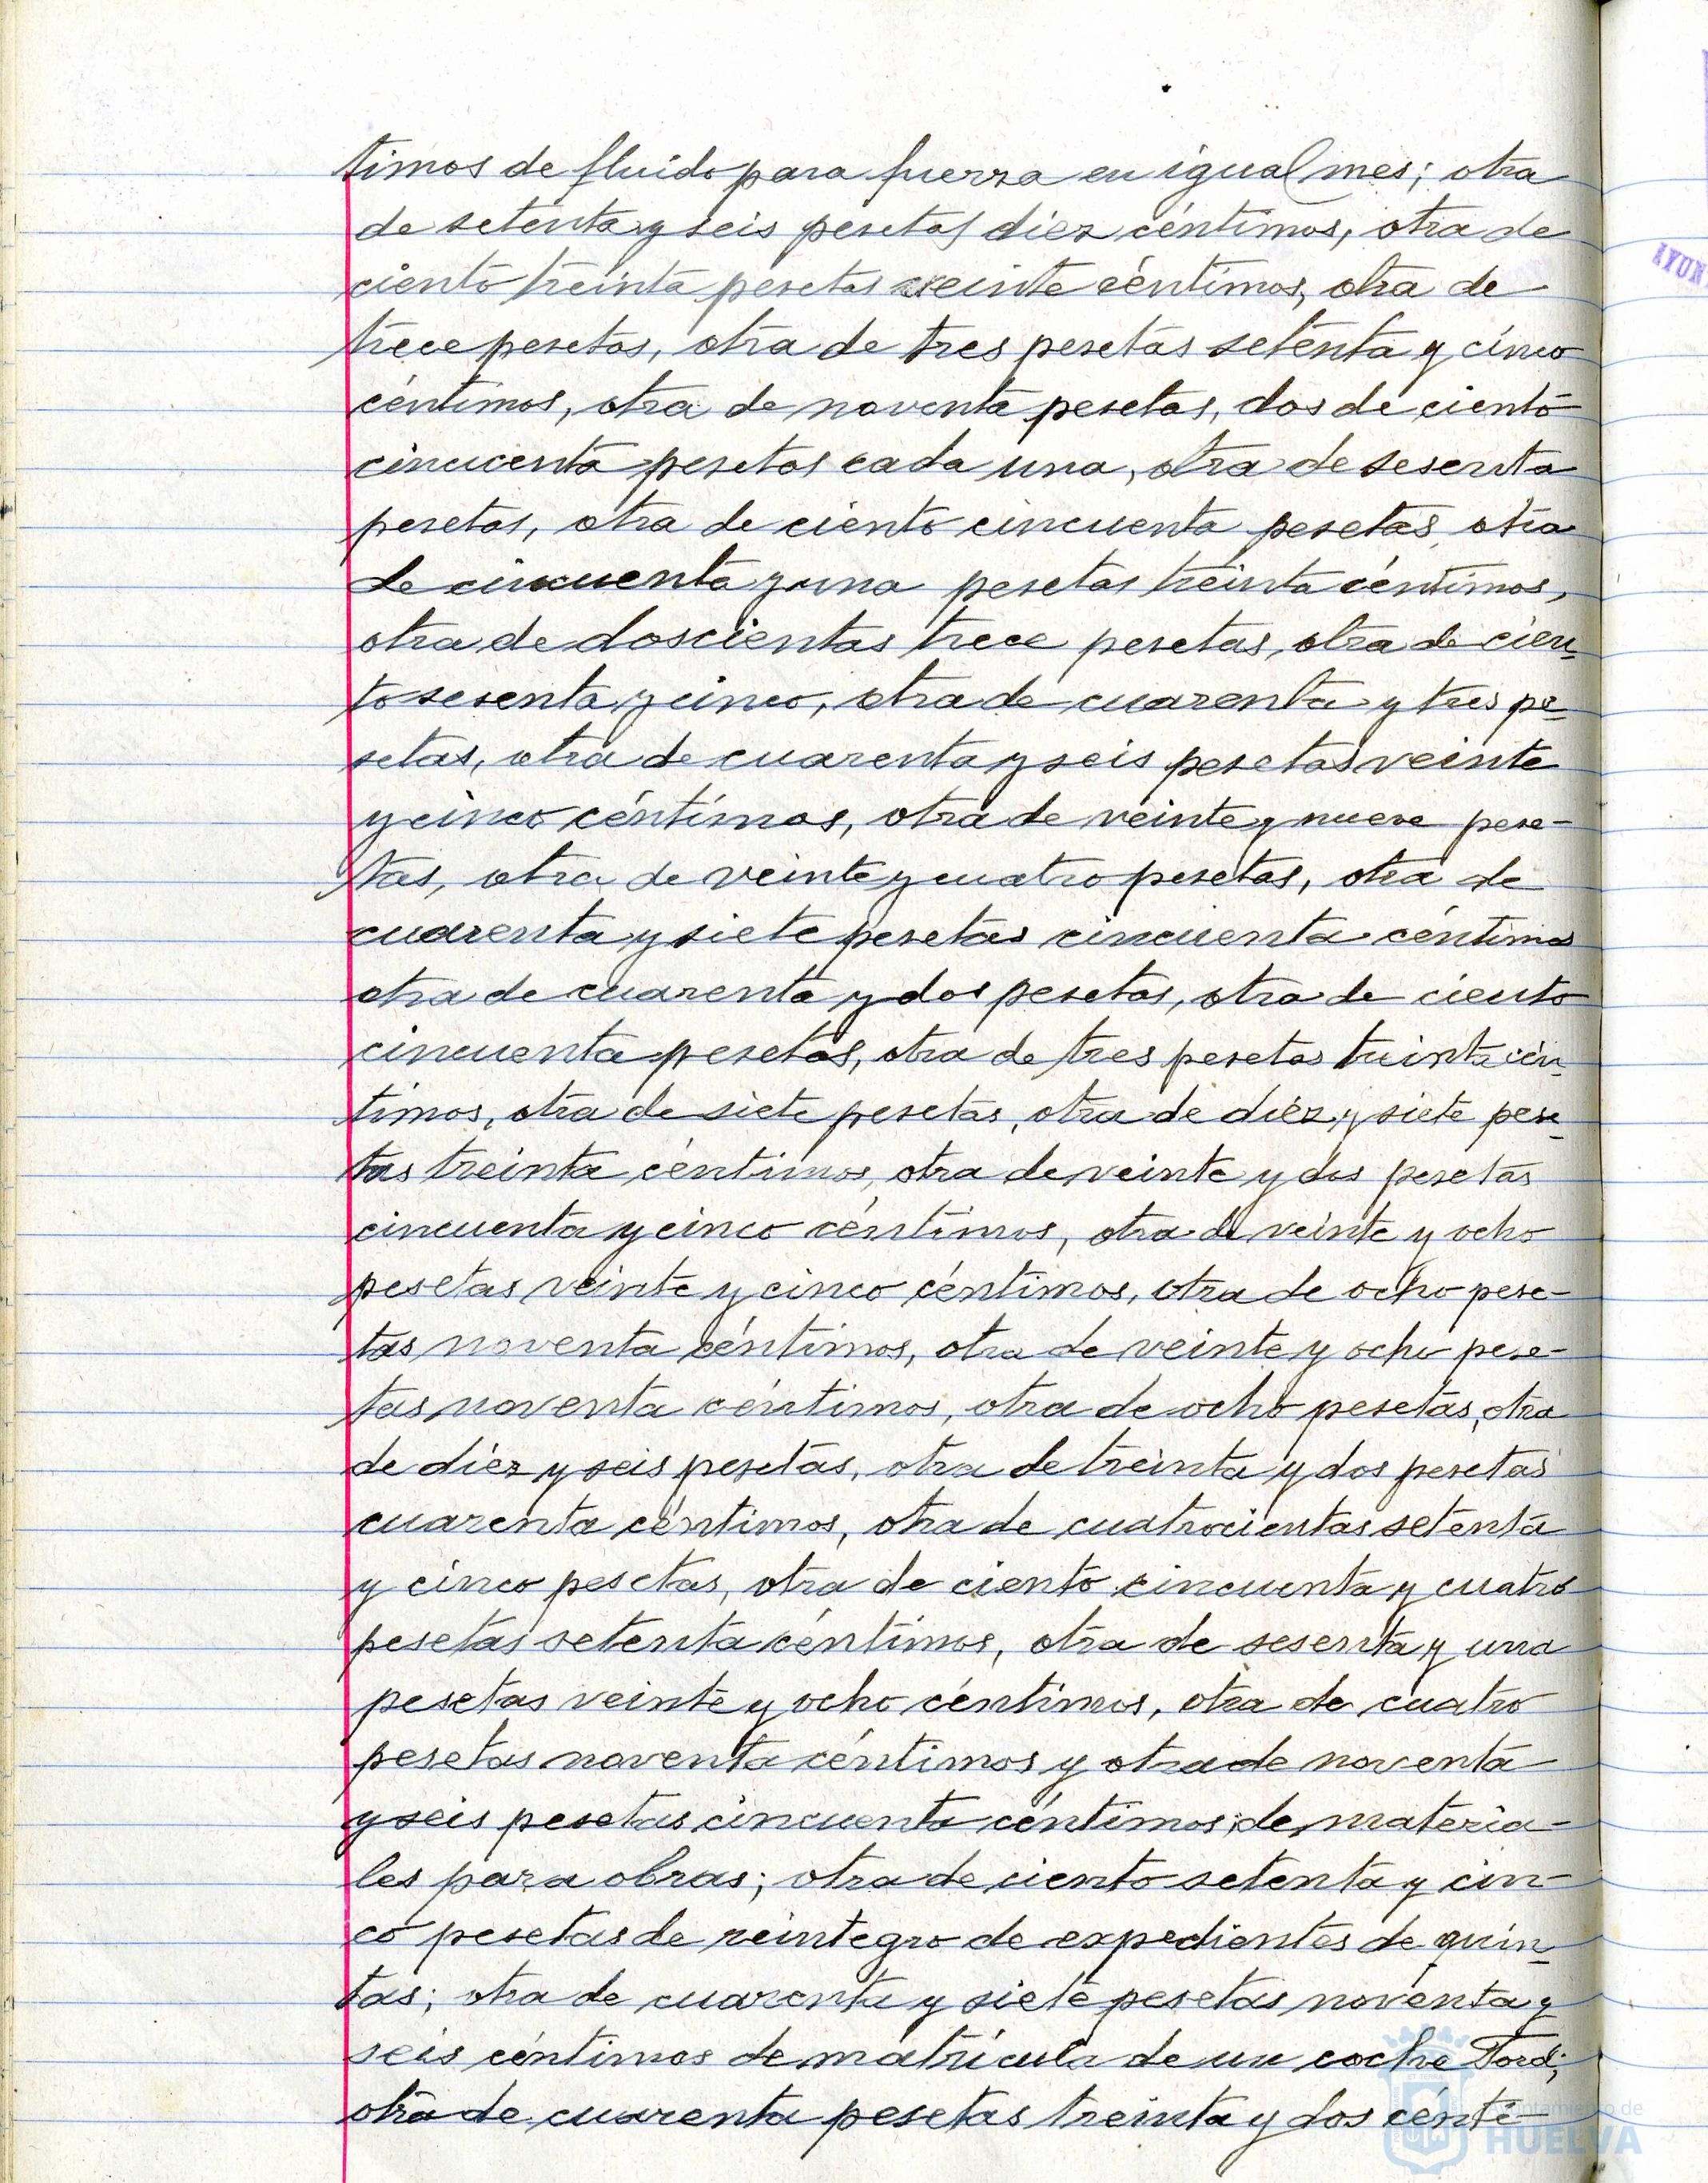 timos de fluido para fuerza en igual mes; otra
de setenta y seis pesetas diez céntimos, otra de
ciento treinta pesetas veinte céntimos, otra de
trece pesetas, otra de tres pesetas setenta y cinco
céntimos, otra de noventa pesetas, dos de ciento
cincuenta pesetas cada una, otra de sesenta
pesetas, otra de ciento cincuenta pesetas, otra
de cincuenta y una pesetas treinta céntimos,
otra de doscientas trece pesetas, otra de cien-
to sesenta y cinco, otra de cuarenta y tres pe-
setas, otra de cuarenta y seis pesetas veinte
y cinco céntimos, otra de veinte y nueve pese-
tas, otra de veinte y cuatro pesetas, otra de
cuarenta y siete pesetas cincuenta céntimos
otra de cuarenta y dos pesetas, otra de ciento
cincuenta pesetas, otra de tres pesetas treinta cén-
timos, otra de siete pesetas, otra de diéz y siete pese-
tas treinta céntimos, otra de veinte y dos pesetas
cincuenta y cinco céntimos, otra de veinte y ocho
pesetas veinte y cinco céntimos, otra de ocho pese-
tas noventa céntimos, otra de veinte y ocho pese-
tas noventa céntimos, otra de ocho pesetas, otra
de diéz y seis pesetas, otra de treinta y dos pesetas
cuarenta céntimos, otra de cuatrocientas setenta
y cinco pesetas, otra de ciento cincuenta y cuatro
pesetas setenta céntimos, otra de sesenta y una
pesetas veinte y ocho céntimos, otra de cuatro
pesetas noventa céntimos y otra de noventa
y seis pesetas cincuenta céntimos, de materia-
les para obras; otra de ciento setenta y cin-
co pesetas de reintegro de expedientes de quin-
tas; otra de cuarenta y siete pesetas noventa y
seis céntimos de matrícula de un coche Ford;
otra de cuarenta pesetas treinta y dos cénti-
AYUN
Ayuntamiento de
HUELVA